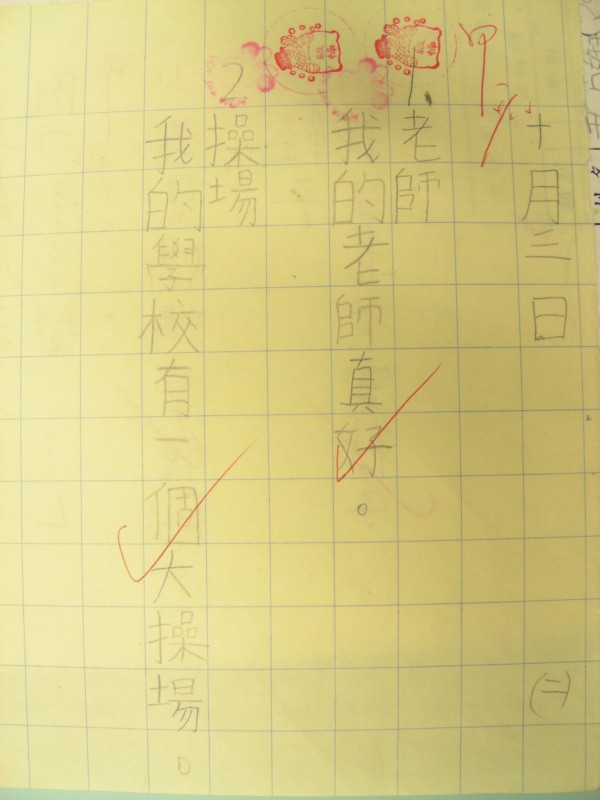 十月三日 (二)
1.老師
我的老師真好。
2.操場
我的學校有一個大操場。
甲